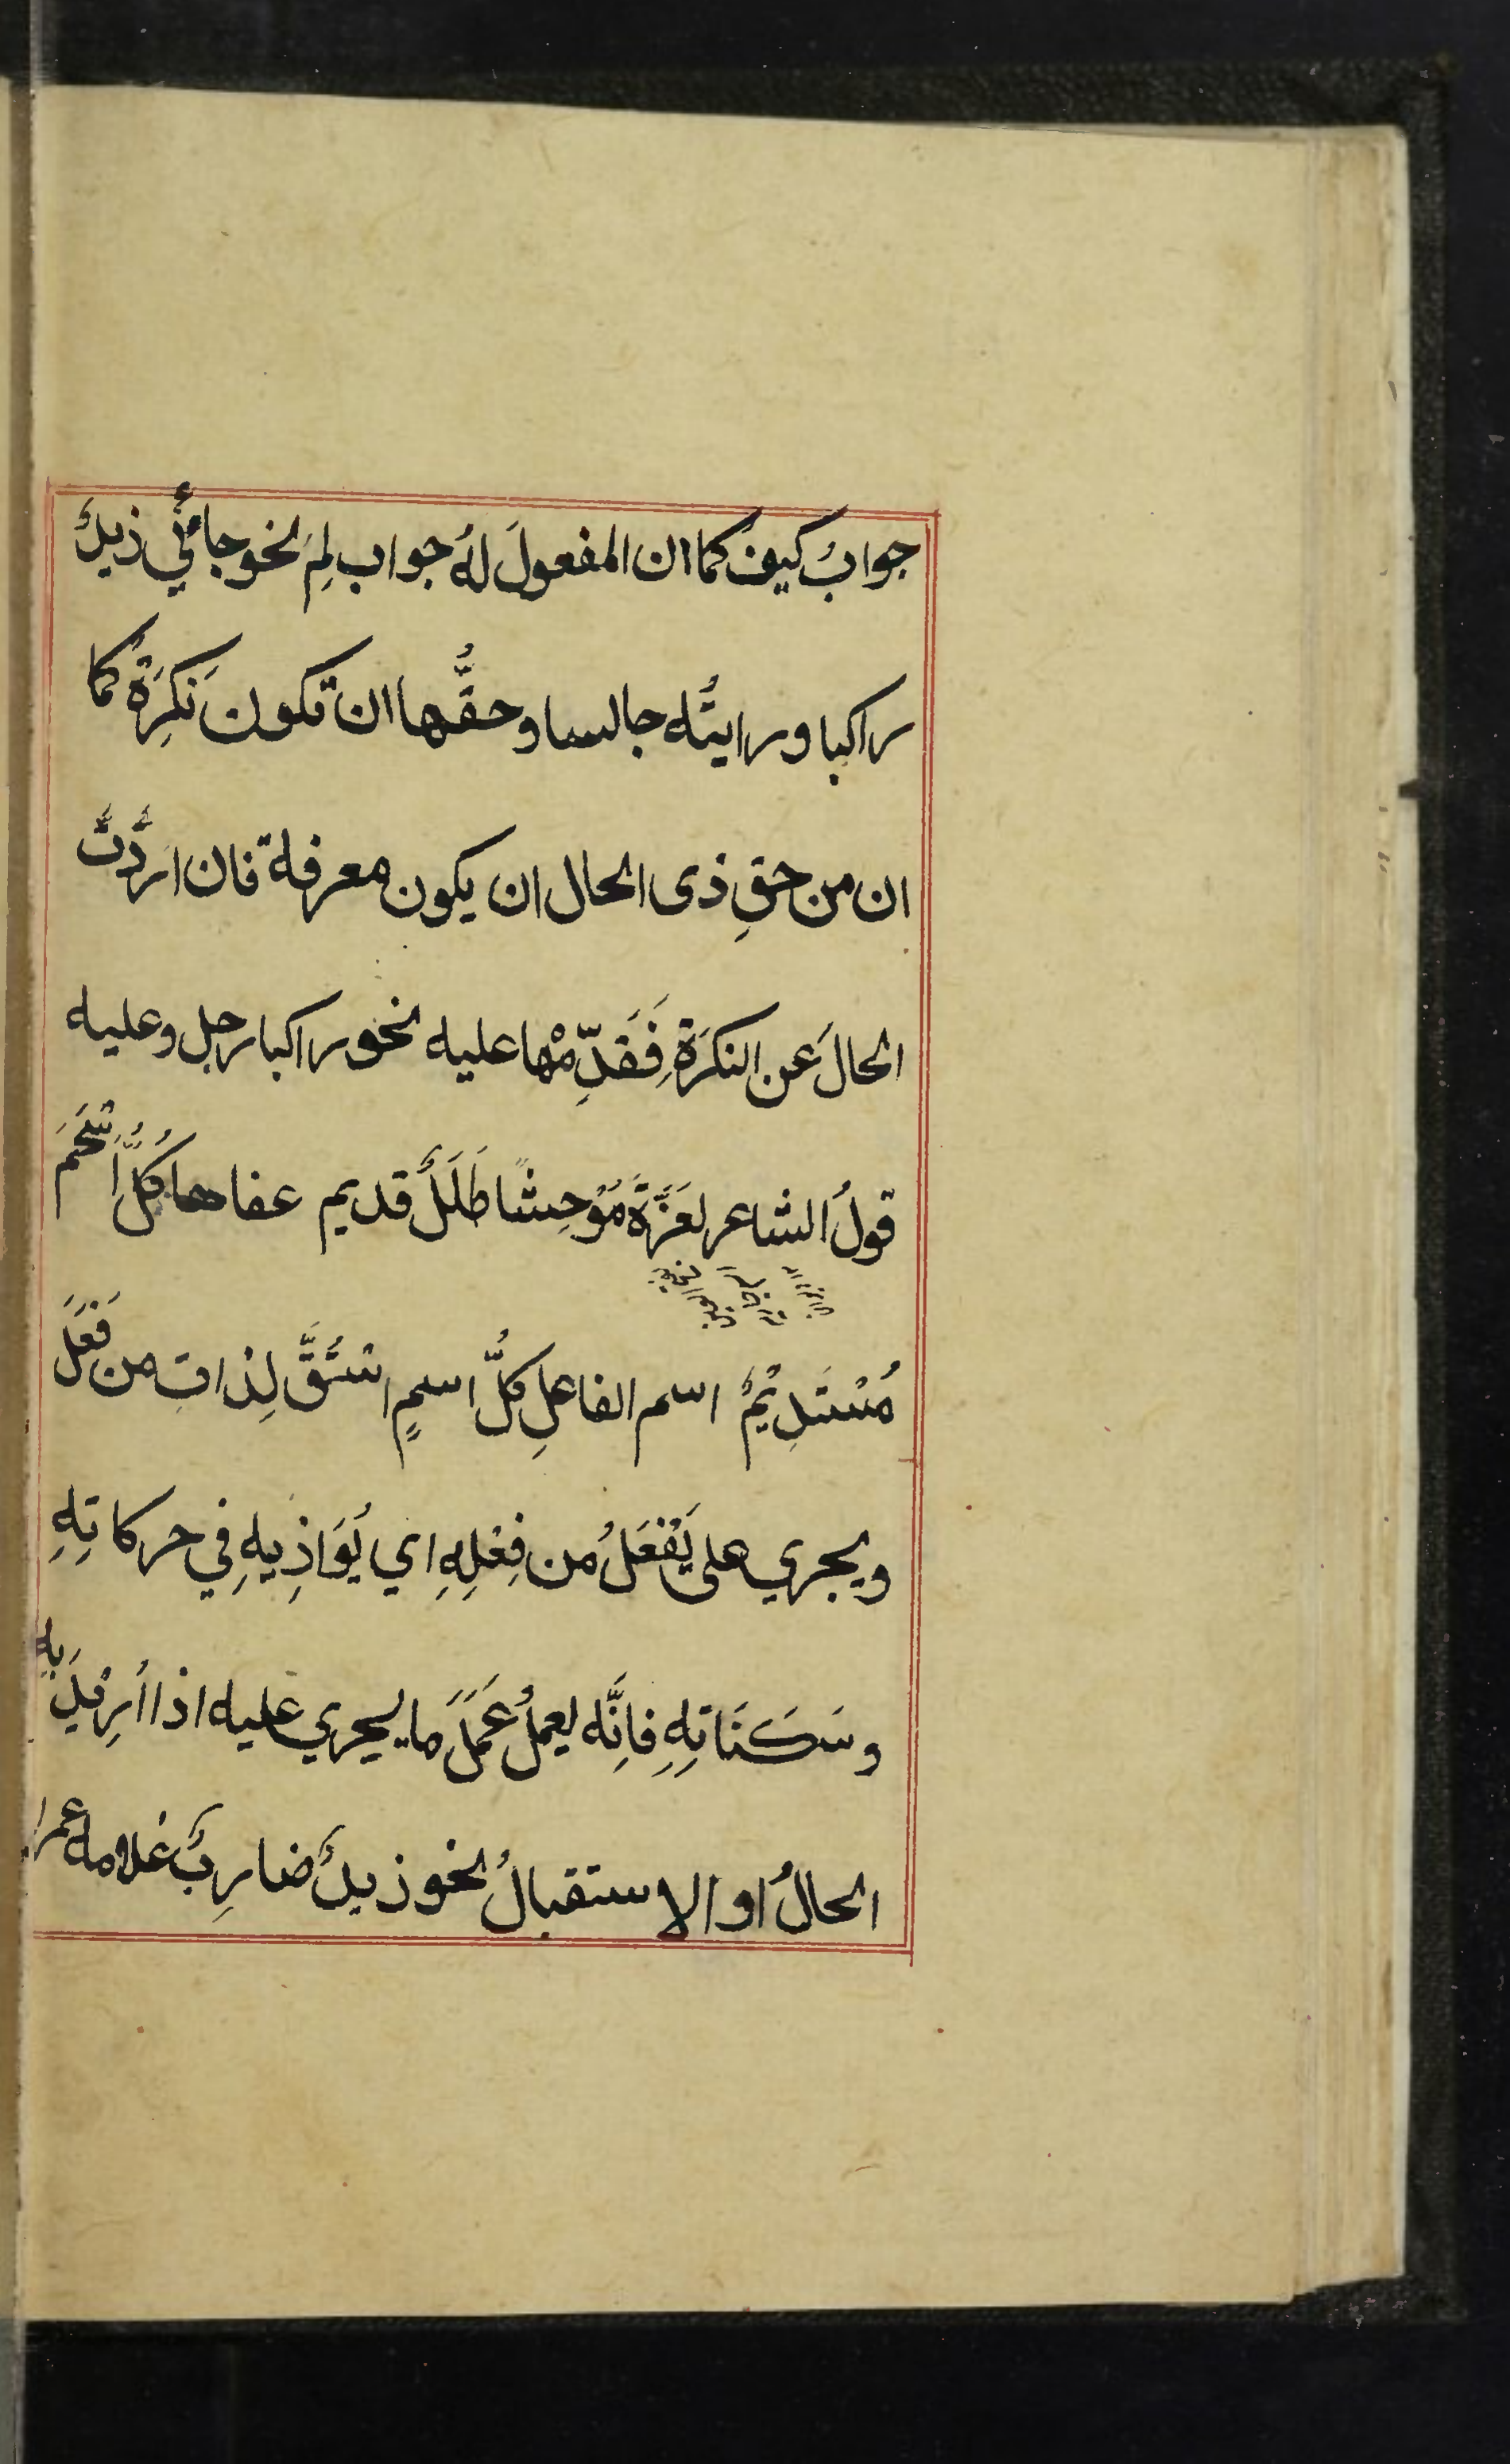 جوابُ كيف كما ان المفعولَ لهُ جواب لِمَ نحو جائَني زيدٌ
راكبا ورايتُه جالسا وحقُّها ان تكونَ نكِرَةً كما
ان من حقِ ذى الحال ان يكون معرفة فان اردْتَ
الحالَ عن النكَرَةِ فَقَدِّمْها عليه نحو راكبا رجل وعليه
قولُ الشاعر لعَزَّةَ مُوْحِشًا طَلَلٌ قديم عفاها كُلُّ اَسْحَمَ
مُسْتَدِيْمٌ اسم الفاعلِ كلُّ اسمٍ اشتُقَّ لِذاتِ من فَعَلَ
ويجري على يَفْعَلُ من فِعْلِهِ اي يُوَاذِيهِ في حركاتهِ
وسَكَنَاتِهِ فاِنَّه يعملُ عَمَلَ ما يجري عليه اذا اُرِيْدَ بِهِ
الحالُ او الاستقبالُ نحو زيدٌ ضارِبٌ غلامه عمرا